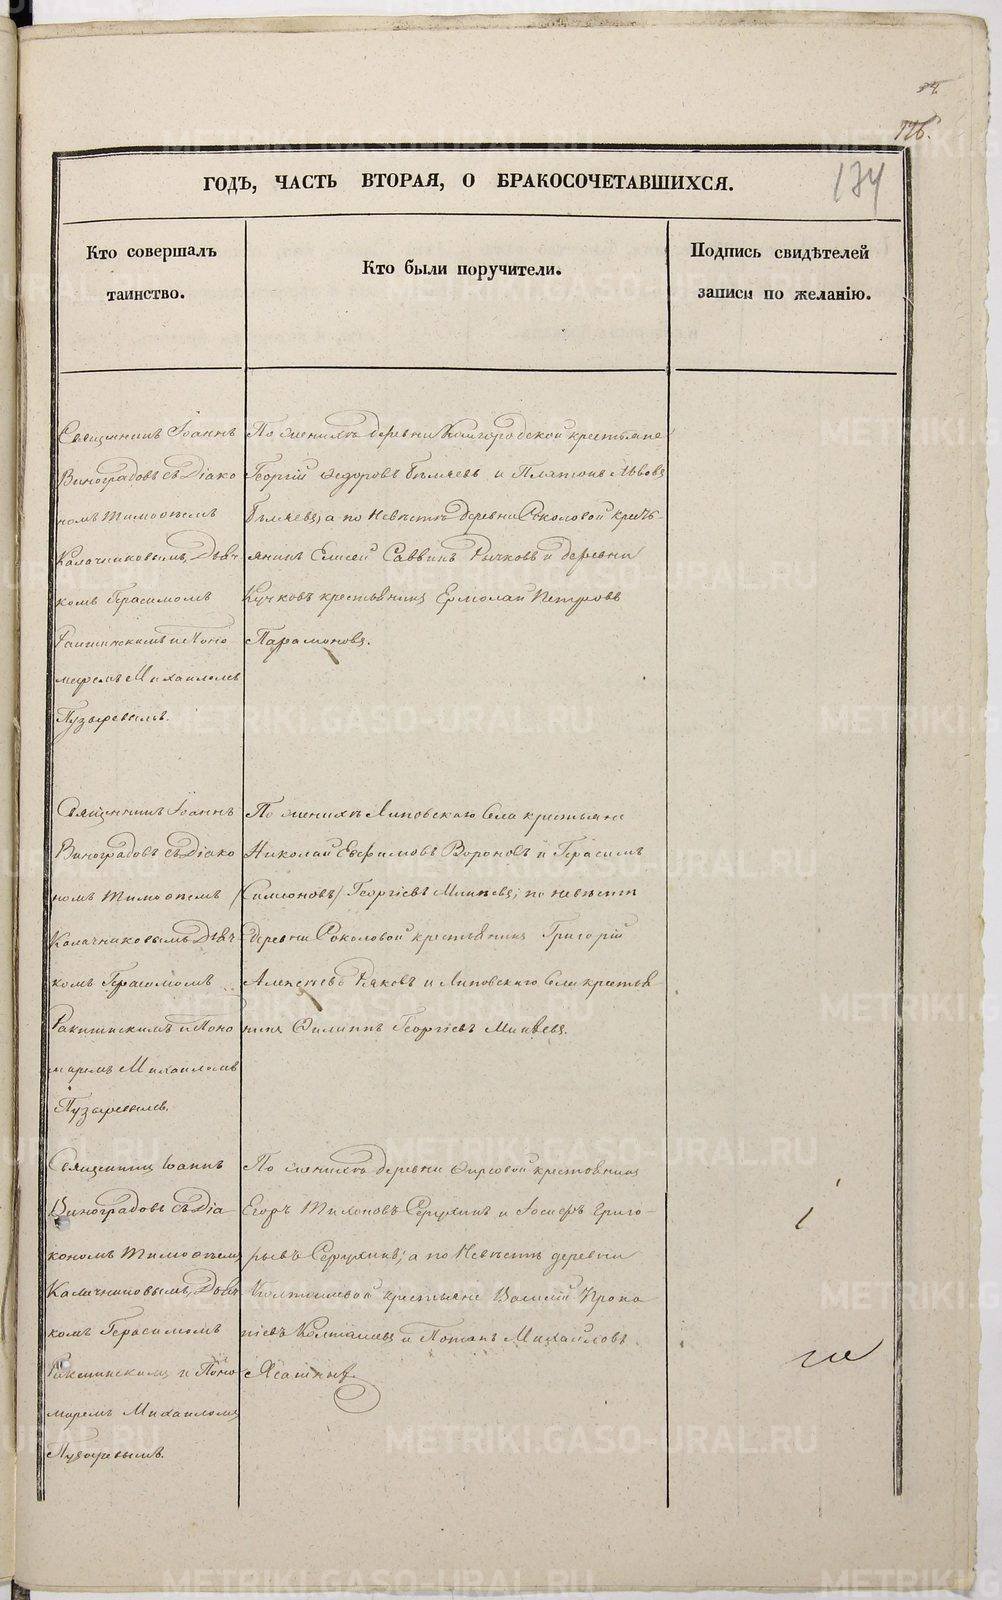 126.
134
ГОДЪ, ЧАСТЬ ВТОРАЯ, О БРАКОСОЧЕТАВШИХСЯ.
Кто совершалъ
таинство.
Кто были поручители.
Подпись свидѣтелей
записи по желанію.
Священникъ Іоаннъ
Виноградовъ съ Діако
номъ Тимоѳеемъ
Калачниковымъ, Дьяч
комъ Герасимомъ
и Поно
маремъ Михаиломъ
Пузыревымъ.
По женихѣ деревни крестьяне
Георгій Ѳедоровъ Бѣляевъ и Платонъ Львовъ
Бѣляевъ, а по Невѣстѣ деревни Соколовой кресть-
янинъ Елисей Саввинъ Рычковъ и деревни
Кучковъ крестьянинъ Ермолай Петровъ
Парамоновъ.
Священникъ Іоаннъ
Виноградовъ съ Діако
номъ Тимоѳеемъ
Калачниковымъ Дьяч
комъ Герасимомъ
Ракитинскимъ и Поно
маремъ Михаиломъ
Пузыревымъ.
По женихѣ Липовскаго Села крестьяне
Николай Евфимовъ Вороновъ и Герасимъ
(Симеоновъ) Георгіевъ Минѣевъ; по невѣстѣ
деревни Соколовой крестьянинъ Григорій
Алексѣевъ и Липовскаго Села крестья
нинъ Филиппъ Георгіевъ Минѣевъ.
Священникъ Іоаннъ
Виноградовъ съ Діа-
кономъ Тимоѳеемъ
Калачниковымъ, Дьяч
комъ Герасимомъ
Ракитинскимъ и Поно
маремъ Михаиломъ
Пузыревымъ.
По женихѣ деревни Фирсовой крестьянинъ
Егоръ Тихоновъ и Іосифъ Григо-
рьевъ а по Невѣстѣ деревни
Колташевой крестьяне Василій Прока
піевъ Колташевъ и Потапъ Михайловъ